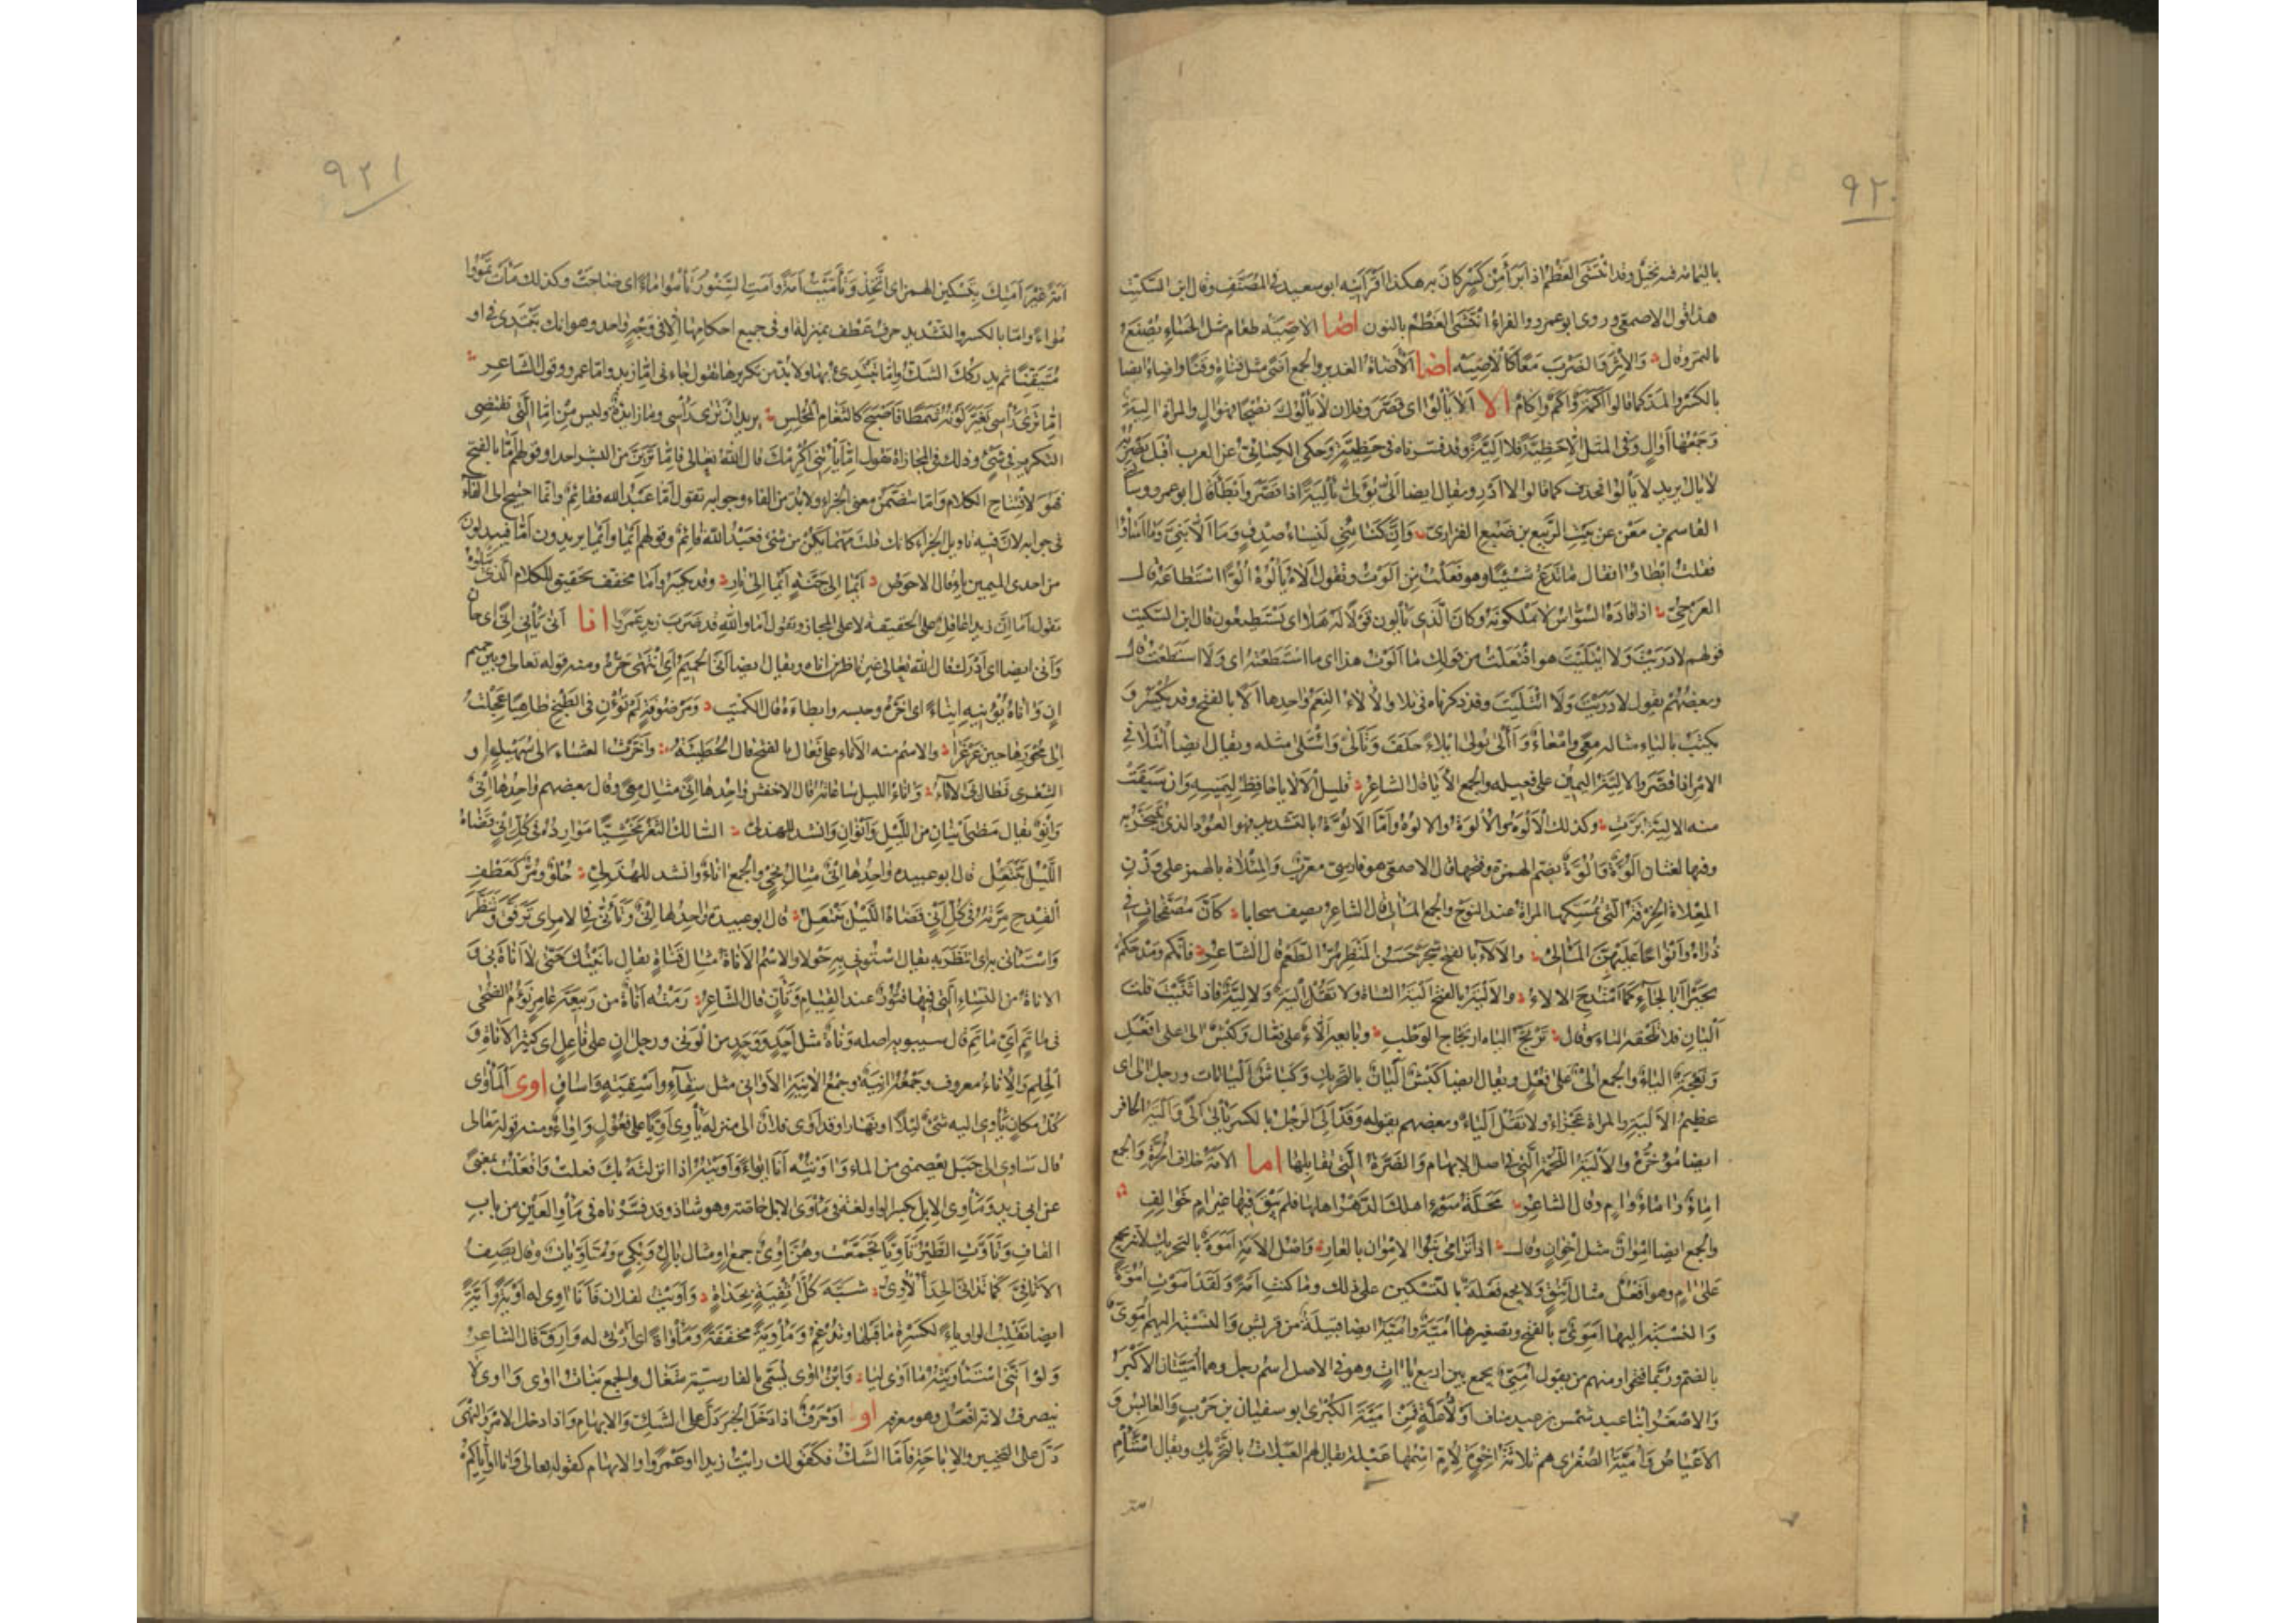 ٩٢٠
هذا قول الاصمعى وروى ابو عمرو والفراء انتشى العظم بالنون اضا الاصيّه طعام مثل الحساء يصنع
بالتمر وقال والاثر والصرب معًا كالاصيه اضا الاضاة الغدير والجمع اضى مثل قناة وقنا واضاء ايضا
بالكسر والمد كما قالوا اكمة واكم واكام الا الا يألوا اى قصّر وفلان لا يألوك نصحًا فهو ال والمراة الية
وجمعها اوال وفى المثل الا حظية فلا الية وقد فسرناه فى حظية وحكى الكسائى عن العرب اقبل يضربه
لا يال يريد لا يألوا فحذف كما قالوا لا ادر ويقال ايضا الّى يؤلى تألية اذا قصر وابطأ قال ابو عمرو وسالنى
القاسم بن معن عن بيت الربيع بن ضبع الفزارى وان كنائنى لنساء صدق وما الّا بنى وما اساؤا
فقلت ابطاوا فقال ما تدع شيئًا وهو فعلت من الوت وتقول الاه يألوه الوًا استطاعه قال
العرجى اذا قاده السواس لا يملكونه وكان الذى يألون قولا له هلا اى يستطيعون قال ابن السكيت
قولهم لا دريت ولا ايتليت هو افتعلت من قولك ما الوت هذا اى ما استطعته اى ولا استطعت قال
وبعضهم يقول لا دريت ولا اتليت وقد ذكرناه فى تلا والالاء النعم واحدها الا بالفتح وقد يكسر و
يكتب بالياء مثاله معى وامعاء وآلى يولى ايلاء حلف وتألى وائتلى مثله ويقال ايضا ائتلا فى
الامر اذا قصر والالية اليمين على فعيلة والجمع الايا قال الشاعر قليل الالايا حافظ ليمينه وان سبقت
منه الالية برت وكذلك الالوة والالوة والالوة واما الالوّة بالتشديد فهو العود الذى يتبخر به
وفيها لغتان الوّة والوّة بضم الهمزة وفتحها قال الاصمعى هو فارسى معرب والمئلاة بالهمز على وزن
المعلاة الخرقة التى تمسكها المراة عند النوح والجمع المآلى قال الشاعر يصف سحابا كان مصفحات فى
ذراه وانواحًا عليهن المآلى والالاء بالفتح شجر حسن المنظر مر الطعم قال الشاعر فانكم ومدحكم
بجيرًا ابا لجاء كما امتدح الالاء والالية بالفتح الية الشاة ولا تقل الية ولا لية فاذا ثنيت قلت
اليان فلا تلحقه التاء وقال ترتج الياه ارتجاج الوطب وبايعه الّاء على فعّال وكبش الى على افعل
ونعجة الياء والجمع الى على فعل ويقال ايضا كبش اليان بالتحريك وكباش اليانات ورجل الى اى
عظيم الالية والمراة عجزاء ولا تقل الياء وبعضهم يقوله وقد الى الرجل بالكسر يألى الى والية الحافر
ايضا مؤخره والالية اللحمة التى فى اصل الابهام والضرة التى تقابلها اما الامة خلاف الحرة والجمع
اماء واماء وام وقال الشاعر محلة سوء اهلك الدهر اهلها فلم يبق فيها غير ام خوالف
والجمع ايضا اموان مثل اخوان وقال اذا ترامى بنوا الاموان بالعار واصل الامة اموة بالتحريك لانه يجمع
على ام وهو افعل مثال اينق ولا يجمع فعلة بالتسكين على ذلك وما كنت امة ولقد اموت اموة
والنسبة اليها اموى بالفتح وتصغيرها امية وامية ايضا قبيلة من قريش والنسبة اليهم اموى
بالضم وربما فتحوا ومنهم من يقول اميى يجمع بين اربع ياات وهو فى الاصل اسم رجل وهما اميتان الاكبر
والاصغر ابنا عبد شمس بن عبد مناف اولاد علة فمن امية الكبرى ابو سفيان بن حرب والعنابس و
الاعياص وامية الصغرى هم ثلاثة اخوة لام اسمها عبلة يقال لهم العبلات بالتحريك ويقال استأم
٩٢١
امة غير امتك بتسكين الهمز اى اتخذ وتأميت امة وامت السنور تأموا اماء اى صاحت وكذلك ماءت تموءوا
مواء واما بالكسر والتشديد حرف عطف بمنزلة او فى جميع احكامها الا فى وجه واحد وهو انك تبتدى فى او
متيقنًا ثم يدركك الشك واما تبتدى بها ولا بد من تكريرها تقول جاءنى اما زيد واما عمرو وقول الشاعر
اما ترى راسى تغير لونه شمطا فاصبح كالثغام المخلس يريد ان ترى راسى وما زايدة وليس من اما التى تقتضى
التكرير فى شئ وذلك فى المجازاة تقول اما تأتنى اكرمك قال الله تعالى فاما ترين من البشر احدا وقولهم اما بالفتح
فهو لافتتاح الكلام واما متضمن معنى الجزاء ولا بد من الفاء وجوابه تقول اما عبد الله فقائم وانما احتيج الى الفاء
فى جوابه لان فيه تاويل الجزاء كانك قلت مهما يكن من شئ فعبد الله قائم وقولهم ايما وايما يريدون اما فيبدلون
من احدى الميمين ياء وقال الاحوص ايما الى جنة ايما الى نار وقد يكسر واما مخفف تحقيق للكلام الذى يتلوه
تقول اما ان زيدًا عاقل على الحقيقة لا على المجاز وتقول اما والله قد ضرب زيد عمرًا انا انى يأنى انى اى حان
وانى ايضا اى ادرك قال الله تعالى غير ناظرين اناه ويقال ايضا انى الحميم اى انتهى حره ومنه قوله تعالى وبين حميم
ان واناه يؤنيه ايناء اى اخره وحبسه وابطاءه قال الكميت ومرضوفة لم تؤن فى الطبخ طاهيا عجلت
الى محورها حين غرغرا والاسم منه الاناء على فعال بالفتح قال الحطيئة واخرت العشاء الى سهيل او
الشعرى فطال بى الاناء واناء الليل ساعاته قال الاخفش واحدها انى مثال معى وقال بعضهم واحدها انى
وانو يقال مضى انيان من الليل وانوان وانشد للهذلى السالك الثغر مخشيا موارده فى كل انى قضاه
الليل ينتعل قال ابو عبيده واحدها انى مثال نحى والجمع اناء وانشد للهذلى حلو ومر كعطف
القدح مرته فى كل انى قضاه الليل ينتعل قال ابو عبيدة واحدها انى وتأنى فى الامر اى ترفق وتنظر
واستأنى به اى انتظر به يقال استونى به حولا والاسم الاناة مثال قناة يقال تأنيتك حتى لا اناة بى و
الاناة من النساء التى فيها فتور عند القيام وتأن قال الشاعر رمته اناة من ربيعة عامر نؤم الضحى
فى مأتم اى مأتم قال سيبويه اصله وناة مثل احد ووحد من الونى ورجل ان على فاعل اى كثير الاناة و
الحلم والاناء معروف وجمعه انية وجمع الانية الاوانى مثل سقاء واسقية واساق اوى المأوى
كل مكان ياوى اليه شئ ليلا او نهارا وقد اوى فلان الى منزله يأوى اويا على فعول واواء ومنه قوله تعالى
قال ساوى الى جبل يعصمنى من الماء واويته انا ايواء واويته اذا انزلته بك فعلت وافعلت بمعنى
عن ابى زيد ومأوى الابل بكسر الواو لغة فى مأوى الابل خاصة وهو شاذ وقد فسرناه فى مأوا العين من باب
القاف وتأوت الطير تأويا تجمعت وهن اوى جمع او مثال باك وبكى ومتاويات وقال يصف
الاثافى كما تدانى الحدأ الاوى شبه كل اثفية بحدأة واويت لفلان فانا اوى له اوية واية
ايضا تقلب الواو ياء لكسرة ما قبلها وتدغم ومأوية مخففة ومأواة اى ارثى له وارق قال الشاعر
ولو اننى استأويته ما اوى ليا وابن اوى يسمى بالفارسية شغال والجمع بنات اوى واوى لا
ينصرف لانه افعل وهو معرفة او او حرف اذا دخل الخبر دل على الشك والابهام واذا دخل الامر والنهى
دل على التخيير والاباحة فاما الشك فكقولك رايت زيدا او عمرًا والابهام كقوله تعالى وانا او اياكم